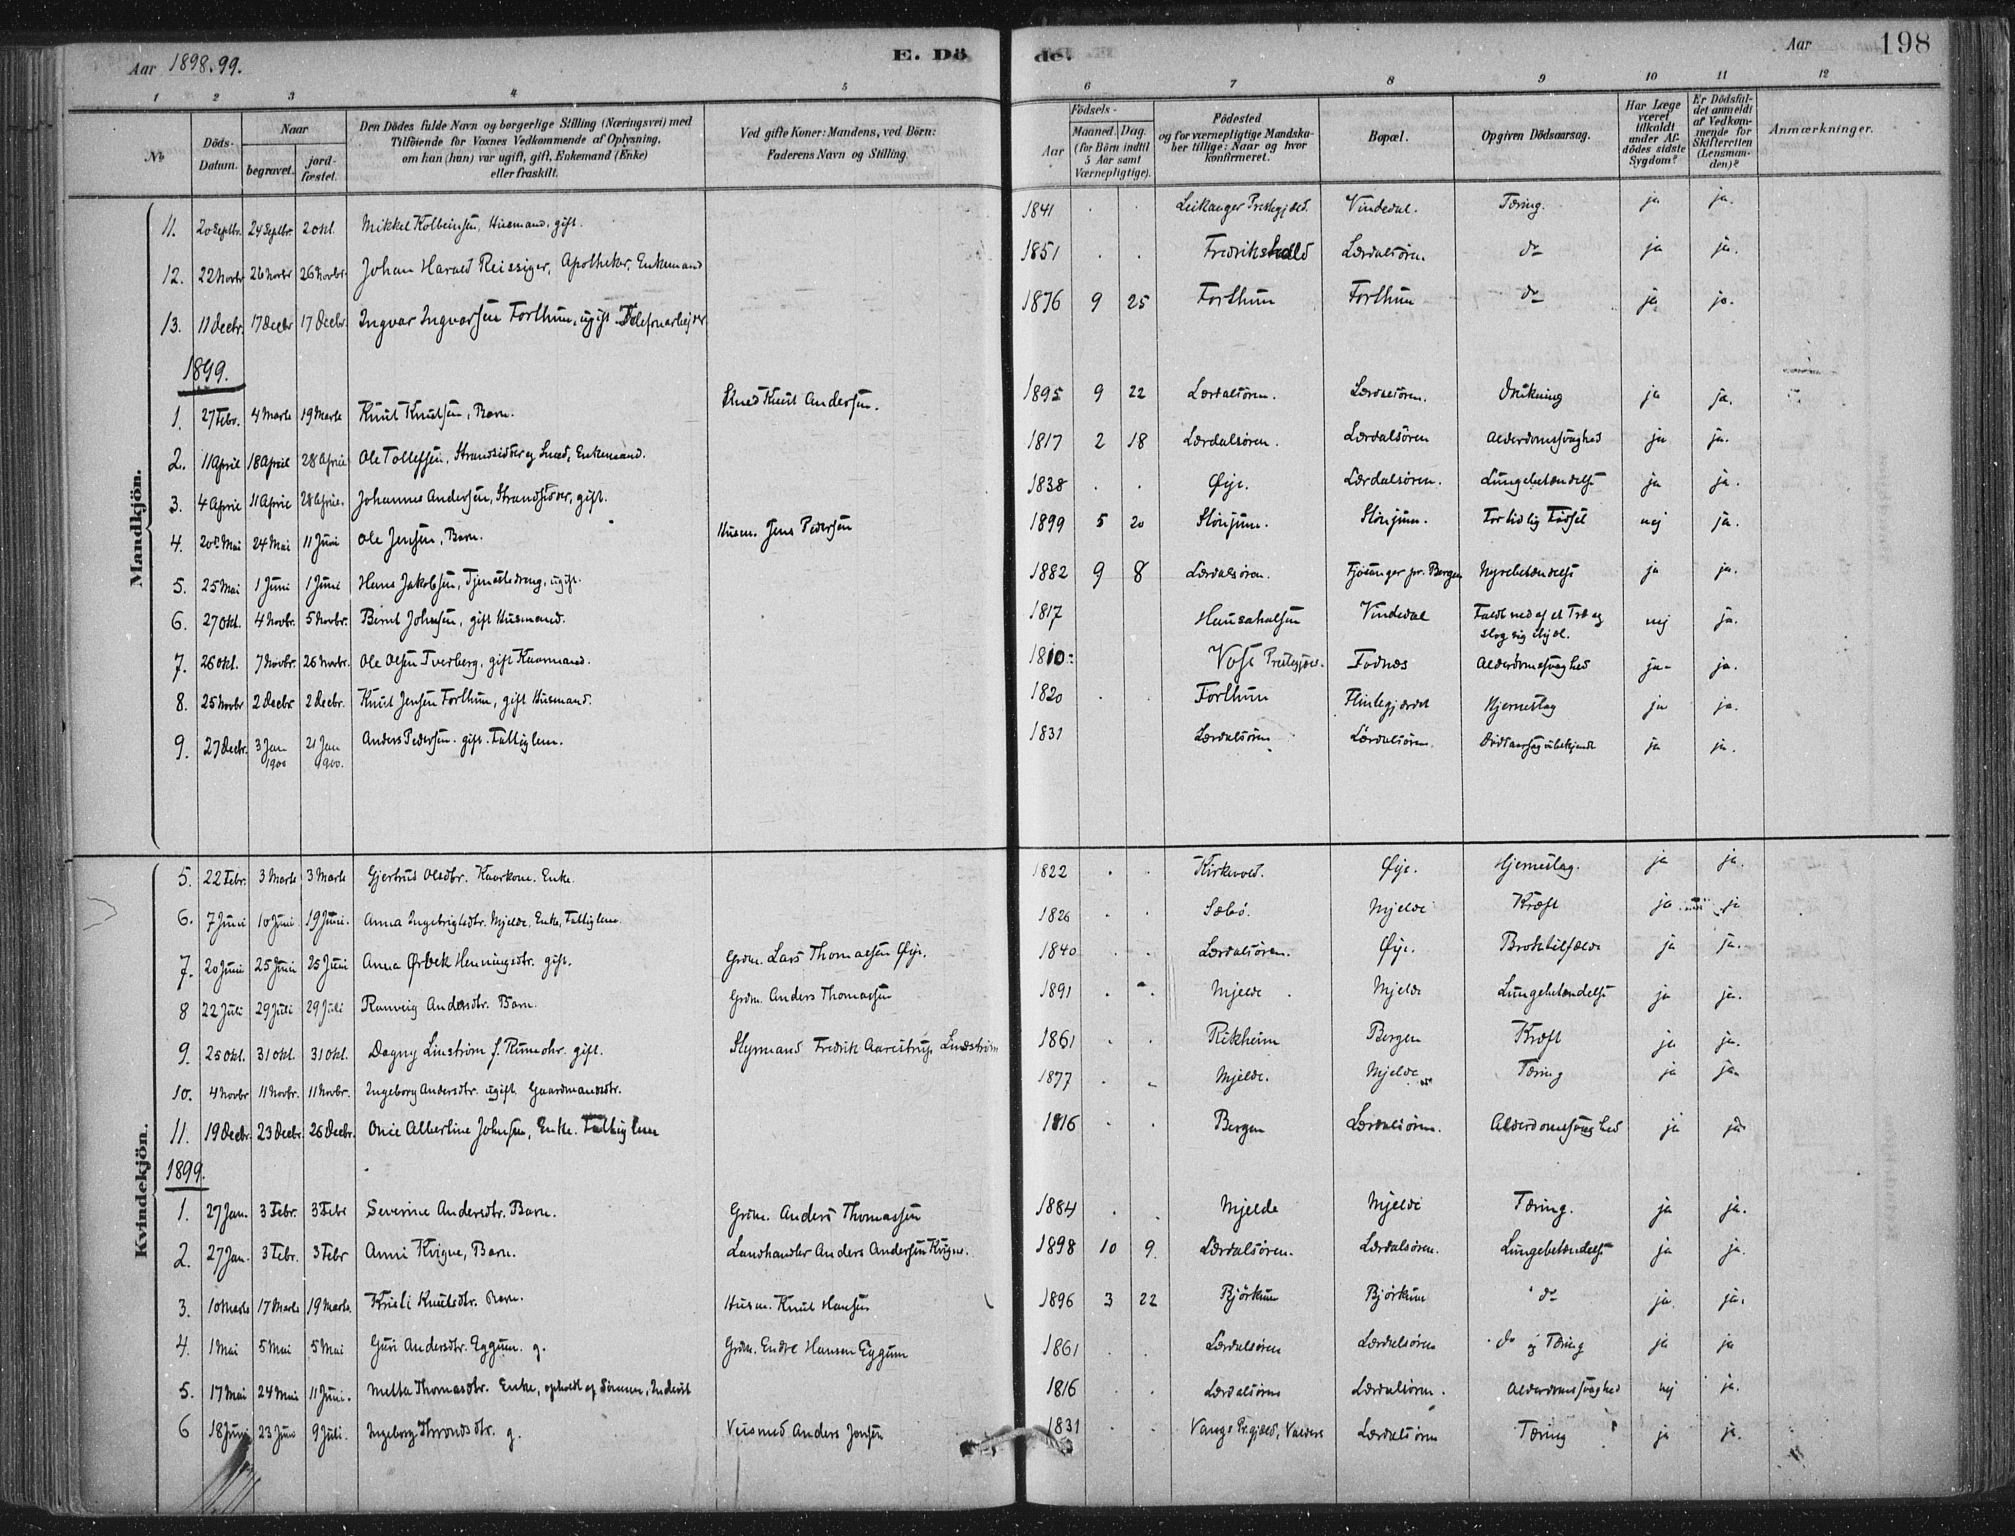 Aar 1898.99.
E. Dö
de.
Aar 198
1 2 3 4 5 6 7 8 9 10 11 12
No
Döds-Datum.
Naar
begravet.
jord-fæstet.
Den Dödes fulde Navn og borgerlige Stilling (Næringsvei) med
Tilföiende for Voxnes Vedkommende af Oplysning,
om han (hun) var ugift, gift, Enkemand (Enke)
eller fraskilt.
Ved gifte Koner: Mandens, ved Börn:
Faderens Navn og Stilling.
Födsels-
Aar
Maaned. Dag.
(for Börn indtil
5 Aar samt
Værnepligtige).
Födested
og for værnepligtige Mandska-
ber tillige: Naar og hvor
konfirmeret.
Bopæl.
Opgiven Dödsaarsag.
Har Læge
været
tilkaldt
under Af-
dödes sidste
Sygdom?
Er Dödsfal-
det anmeldt
af Vedkom-
mende for
Skifteretten
(Lensman-
den)?
Anmærkninger.
Mandkjön.
11. 20 Septbr. 24 Septbr. 2 Okt. Mikkel Kolbeinsen, Husmand, gift. 1841 Leikanger Prestegjæld. Vindedal. Tæring. ja ja.
12. 22 Novbr 26 Novbr 26 Novbr. Johan Harald Reissiger, Apotheker, Enkemand 1851 Fredrikshald Lærdalsören. do ja ja.
13. 11 Decbr. 17 Decbr 17 Decbr. Ingvar Ingvarsen Forthun, ugift Telefonarbejder 1876 9 25 Forthun Forthun do ja ja.
1899.
1. 27 Febr. 4 Marts 19 Marts Knut Knutsen, Barn. Smed Knut Andersen. 1895 9 22 Lærdalsören. Lærdalsören. Drukning ja ja.
2. 11 April 18 April 28 April Ole Tollefsen, Strandsidder og Smed, Enkemand. 1817 2 18 Lærdalsören. Lærdalsören Alderdomssvaghed ja ja.
3. 4 April 11 April 28 April. Johannes Andersen, Strandsidder, gift. 1838 Øye. Lærdalsören. Lungebetændelse ja ja.
4. 20 Mai 24 Mai 11 Juni Ole Jensen, Barn. Husm. Jens Pedersen 1899 5 20 Stönjum. Stönjum. For tidlig Födsel nej ja.
5. 25 Mai 1 Juni 1 Juni Hans Jakobsen, Tjenestedreng, ugift. 1882 9 8 Lærdalsören. Fjösanger pr. Bergen Nyrebetændelse ja ja.
6. 27 Okt. 4 Novbr. 5 Novbr. Bernt Johnsen, gift Husmand. 1817 Hausahalsen Vindedal Faldt ned af et Træ og
slog sig ihjel. nej ja.
7. 26 Okt. 7 Novbr. 26 Novbr. Ole Olsen Tverberg, gift Kaarmand. 1810 Vos Prestegjæld. Fodnes Alderdomssvaghed ja ja.
8. 25 Novbr 2 Decbr. 2 Decbr. Knut Jensen Forthun, gift Husmand. 1820 Forthun Flintegjærdet Hjerneslag ja ja.
9. 27 Decbr. 3 Jan 1900 21 Jan 1900. Anders Pedersen. gift. Fattiglem. 1831 Lærdalsören Lærdalsören. Dödsaarsag ubekjendt ja ja.
Kvindekjön.
5. 22 Febr. 3 Marts 3 Marts Gjertrud Olsdtr. Kaarkone. Enke. 1822 Kirkevold. Øye. Hjerneslag. ja ja.
6. 7 Juni 10 Juni 19 Juni. Anna Ingebrigtsdtr. Mjelde. Enke, Fattiglem. 1826 Sæbö. Mjelde Kræft ja ja
7. 20 Juni 25 Juni 25 Juni Anna Ørbek Henningsdtr. gift. Grdm. Lars Thomassen Øye. 1840 Lærdalsören. Øye. Broktilfælde ja ja.
8 22 Juli 29 Juli 29 Juli Ranveig Andersdtr. Barn. Grdm. Anders Thomassen 1891 Mjelde Mjelde Lungebetændelse ja ja.
9. 25 Okt. 31 Okt. 31 Okt. Dagny Linström f. Rumohr. gift. Styrmand Fredrik Aarestrup Lindström 1861 Rikheim Bergen Kræft ja ja.
10. 4 Novbr 11 Novbr. 11 Novbr. Ingeborg Andersdtr. ugift Gaardmandsdtr. 1877 Mjelde. Mjelde Tæring ja ja.
11. 19 Decbr. 23 Decbr. 26 Decbr. Albertine Johnsen, Enke. Fattiglem 1816 Bergen Lærdalsören. Alderdomssvaghed ja ja.
1899.
1. 27 Jan. 3 Febr. 3 Febr Severine Andersdtr. Barn. Grdm. Anders Thomassen 1884 Mjelde Mjelde Tæring. ja ja.
2. 27 Jan. 3 Febr. 3 Febr Anni Kvigne, Barn. Landhandler Anders Andersen Kvigne. 1898 10 9. Lærdalsören. Lærdalsören. Lungebetændelse ja ja.
3. 10 Marts 17 Marts 19 Marts. Kristi Knutsdtr. Barn. Husm. Knut Hansen 1896 3 22 Björkum Björkum do ja. ja.
4. 1 Mai 5 Mai 5 Mai Guri Andersdtr. Eggum. g. Grdm. Endre Hansen Eggum 1861 Lærdalsören Lærdalsören do og Tæring ja ja
5. 17 Mai 24 Mai 11 Juni. Metta Thomasdtr. Enke, opholdt af Sönnen, Inderst 1816 Lærdalsören Lærdalsören. Alderdomssvaghed nej ja.
6 18 Juni 23 Juni 9 Juli. Ingeborg Throndsdtr. g. Veismed Anders Jensen 1831 Vangs Prgjæld, Valdres Lærdalsören Tæring ja ja.